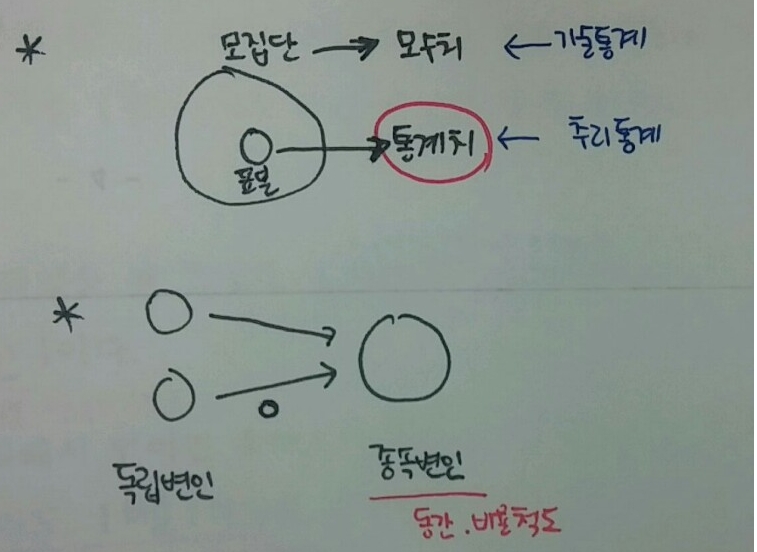 * 모집단 → 모수치 ← 기술통계
표본 → 통계치 ← 추리통계
*
독립변인 종속변인
등간.비율척도